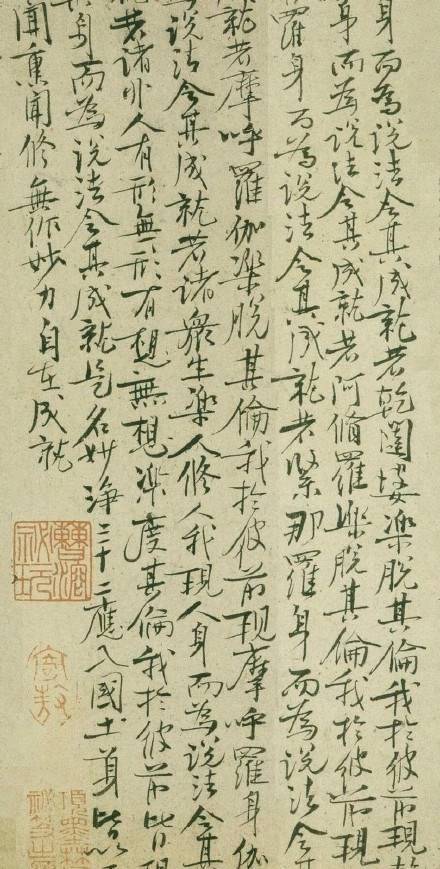 身而為說法令其成就若乾闥婆樂脫其倫我於彼前現乾
身而為說法令其成就若阿脩羅樂脫其倫我於彼前現
羅身而為說法令其成就若緊那羅身而為說法令其
就若摩呼羅伽樂脫其倫我於彼前現摩呼羅身伽
為說法令其成就若諸眾生樂人修人我現人身而為說法令其
就若諸非人有形無形有想無想樂度其倫我於彼前皆現
其身而為說法令其成就是名妙淨三十二應入國土身皆以
聞熏聞修無作妙力自在成就